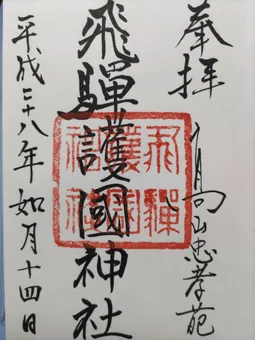 奉拝
高山忠孝苑
飛騨護國神社
平成二十八年如月十四日